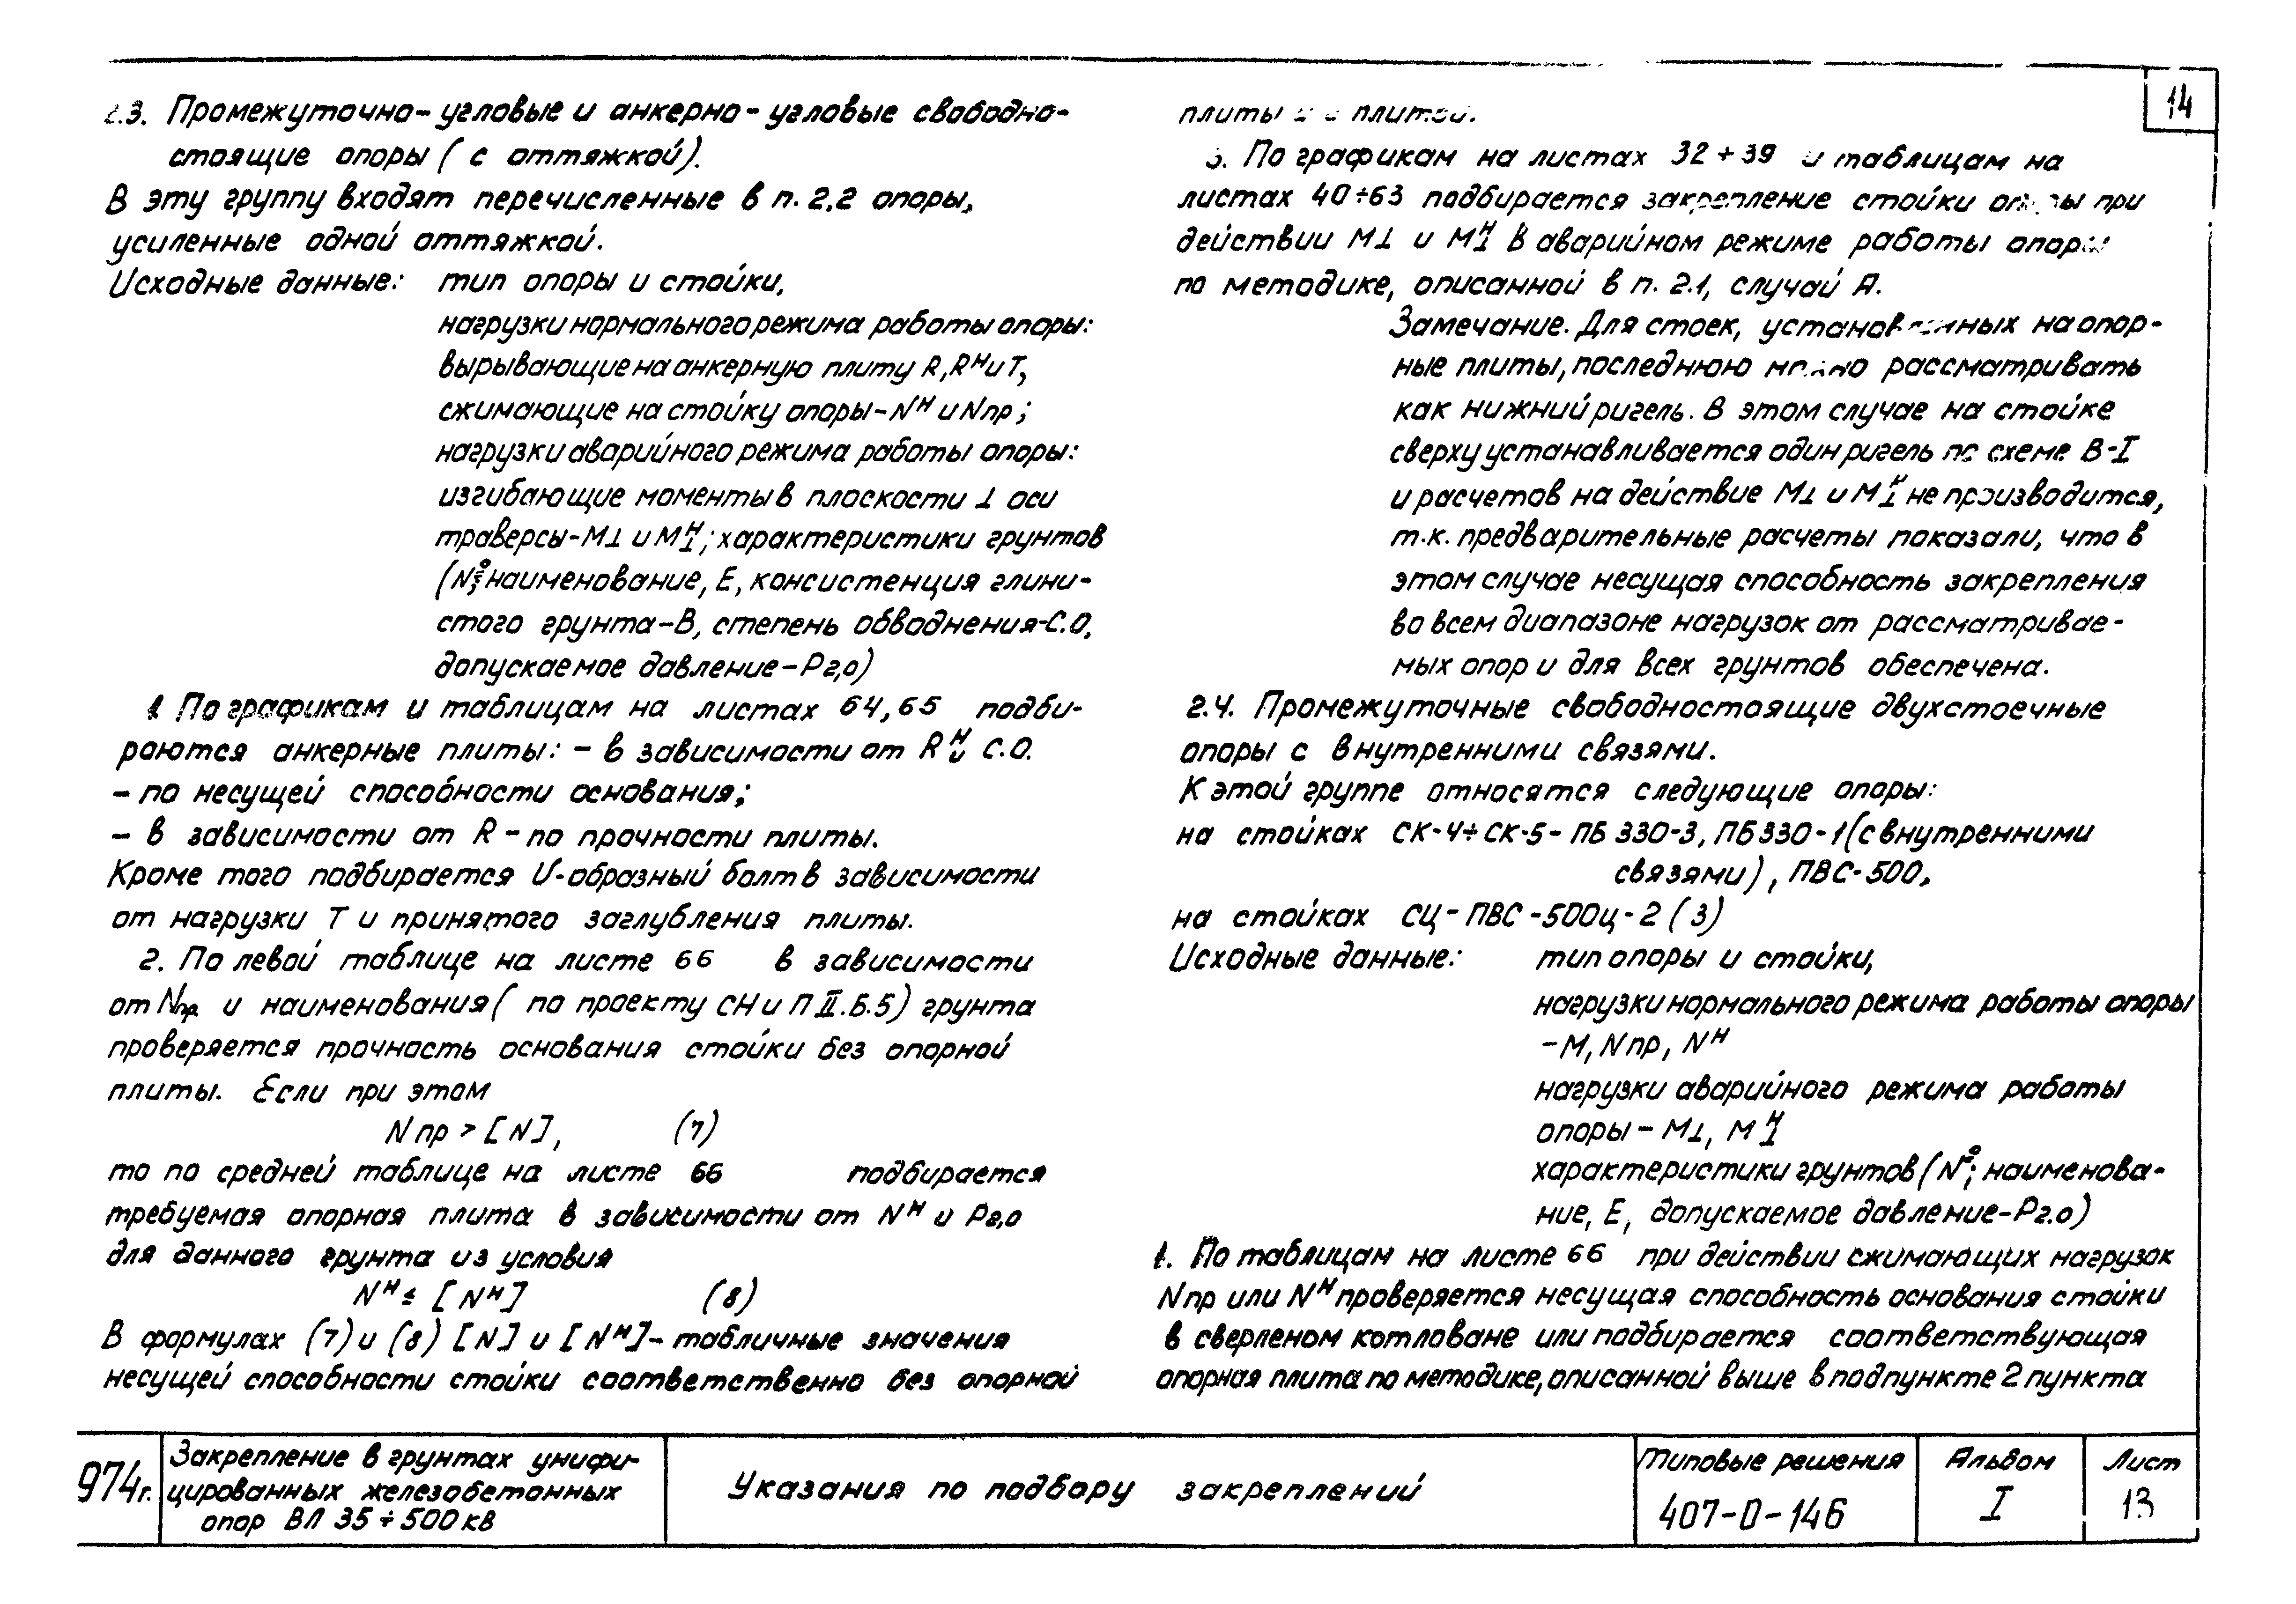 14
2.3. Промежуточно-угловые и анкерно-угловые свободно-
стоящие опоры ( с оттяжкой).
В эту группу входят перечисленные в п. 2.2 опоры,
усиленные одной оттяжкой.
Исходные данные: тип опоры и стойки,
нагрузки нормального режима работы опоры:
вырывающие на анкерную плиту R, Rᴴ и T,
сжимающие на стойку опоры-Nᴴ и Nпр;
нагрузки аварийного режима работы опоры:
изгибающие моменты в плоскости ⊥ оси
траверсы-M⊥ и M⊥ᴴ; характеристики грунтов
(№; наименование, E, консистенция глини-
стого грунта-В, степень обводнения-С.О,
допускаемое давление-Рг,о)
1 По графикам и таблицам на листах 64,65 подби-
раются анкерные плиты: - в зависимости от Rᴴ и С.О.
- по несущей способности основания;
- в зависимости от R - по прочности плиты.
Кроме того подбирается U-образный болт в зависимости
от нагрузки T и принятого заглубления плиты.
2. По левой таблице на листе 66 в зависимости
от Nпр и наименования ( по проекту СН и П II.Б.5) грунта
проверяется прочность основания стойки без опорной
плиты. Если при этом
Nпр > [N], (7)
то по средней таблице на листе 66 подбирается
требуемая опорная плита в зависимости от Nᴴ и Рг,о
для данного грунта из условия
Nᴴ ≤ [Nᴴ] (8)
В формулах (7) и (8) [N] и [Nᴴ]- табличные значения
несущей способности стойки соответственно без опорной
плиты и с плитой.
3. По графикам на листах 32÷39 и таблицам на
листах 40÷63 подбирается закрепление стойки опоры при
действии M⊥ и M⊥ᴴ в аварийном режиме работы опоры
по методике, описанной в п. 2.1, случай А.
Замечание. Для стоек, установленных на опор-
ные плиты, последнюю можно рассматривать
как нижний ригель. В этом случае на стойке
сверху устанавливается один ригель по схеме В-I
и расчетов на действие M⊥ и M⊥ᴴ не производится,
т.к. предварительные расчеты показали, что в
этом случае несущая способность закрепления
во всем диапазоне нагрузок от рассматривае-
мых опор и для всех грунтов обеспечена.
2.4. Промежуточные свободностоящие двухстоечные
опоры с внутренними связями.
К этой группе относятся следующие опоры:
на стойках СК-4÷СК-5- ПБ 330-3, ПБ330-1(с внутренними
связями), ПВС-500,
на стойках СЦ- ПВС-500ц-2 (3)
Исходные данные: тип опоры и стойки,
нагрузки нормального режима работы опоры
-M, Nпр, Nᴴ
нагрузки аварийного режима работы
опоры- M⊥, M⊥ᴴ
характеристики грунтов (№; наименова-
ние, E, допускаемое давление-Рг.о)
1. По таблицам на листе 66 при действии сжимающих нагрузок
Nпр или Nᴴ проверяется несущая способность основания стойки
в сверленом котловане или подбирается соответствующая
опорная плита по методике, описанной выше в подпункте 2 пункта
974г.
Закрепление в грунтах унифи-
цированных железобетонных
опор ВЛ 35÷500 кв
Указания по подбору закреплений
Типовые решения
407-0-146
Альбом
I
Лист
13